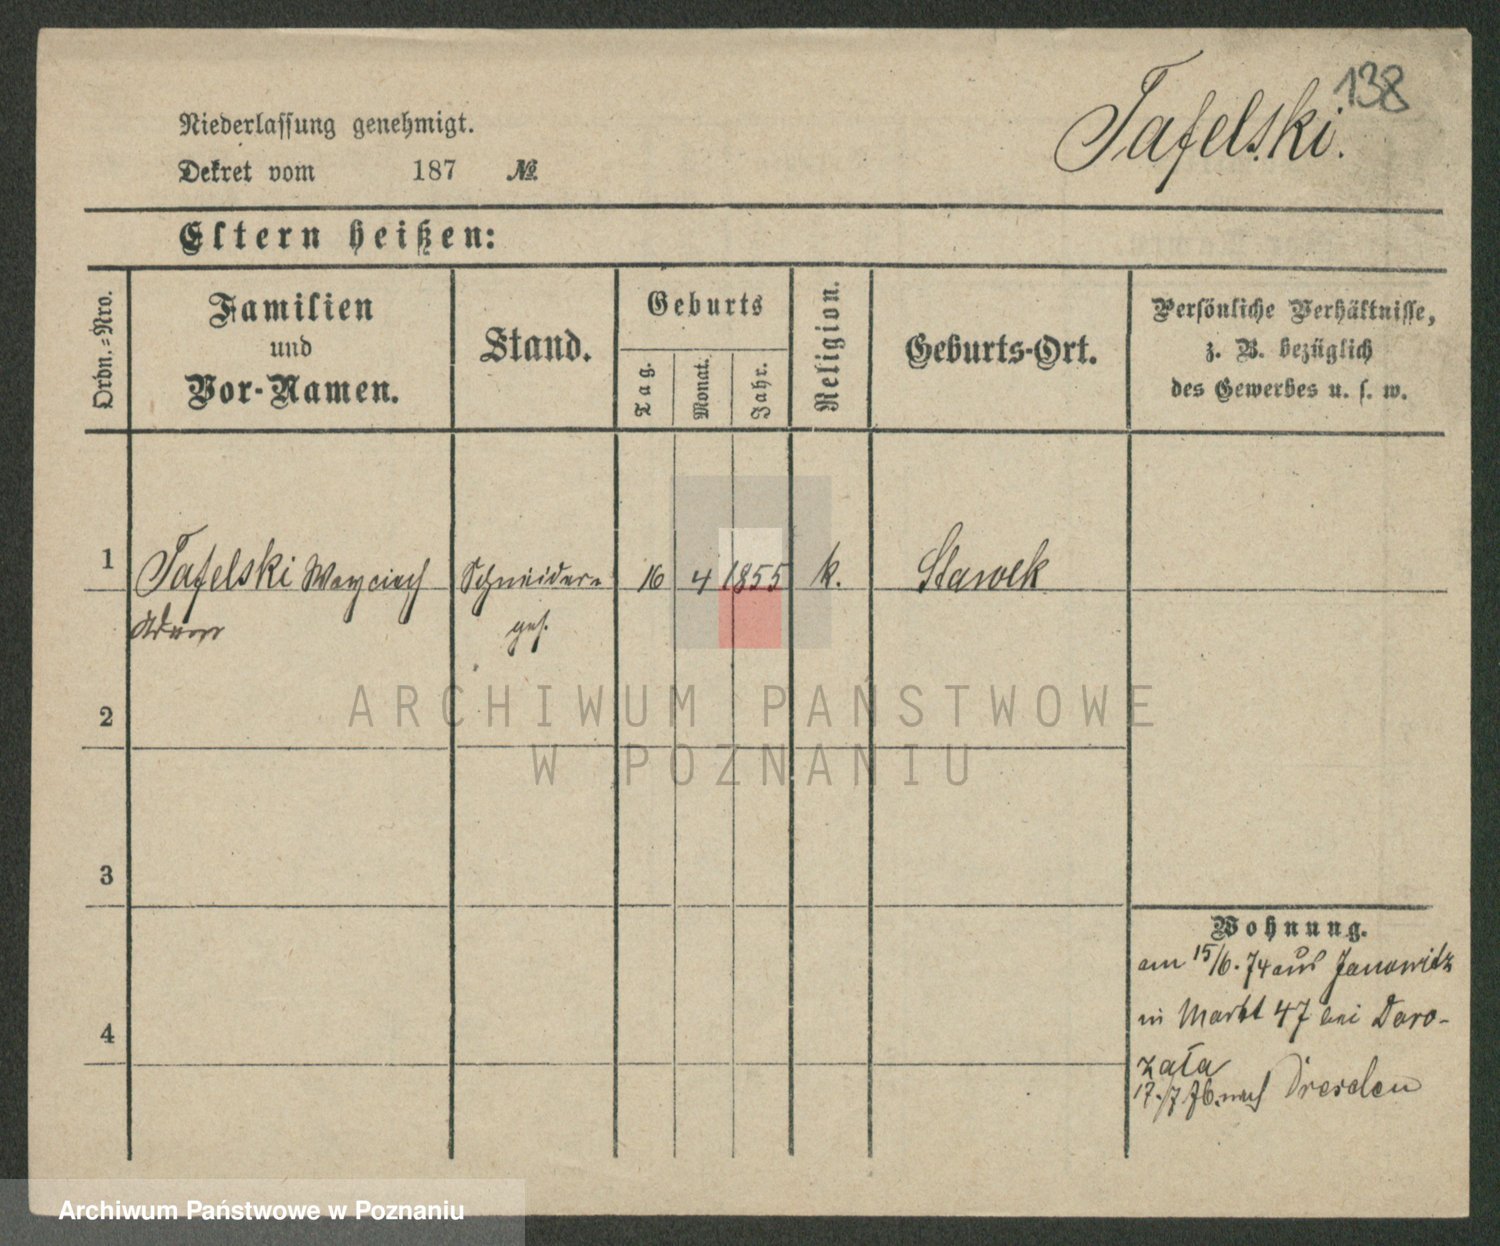 138
Tafelski.
Niederlassung genehmigt.
Dekret vom 187 №
Eltern heißen:
Ordn.-Nro.
Familien
und
Vor-Namen.
Stand.
Geburts
Tag.
Monat.
Jahr.
Religion.
Geburts-Ort.
Persönliche Verhältnisse,
z. B. bezüglich
des Gewerbes u. s. w.
1 Tafelski Woyciech Schneider- 16 4 1855 k. Slawek
ges.
2
3
4
Wohnung.
am 15/6. 74 aus Janowitz
in Markt 47 bei Doro-
zała
17./7 76. nach Dresden
ARCHIWUM PAŃSTWOWE
W POZNANIU
Archiwum Państwowe w Poznaniu